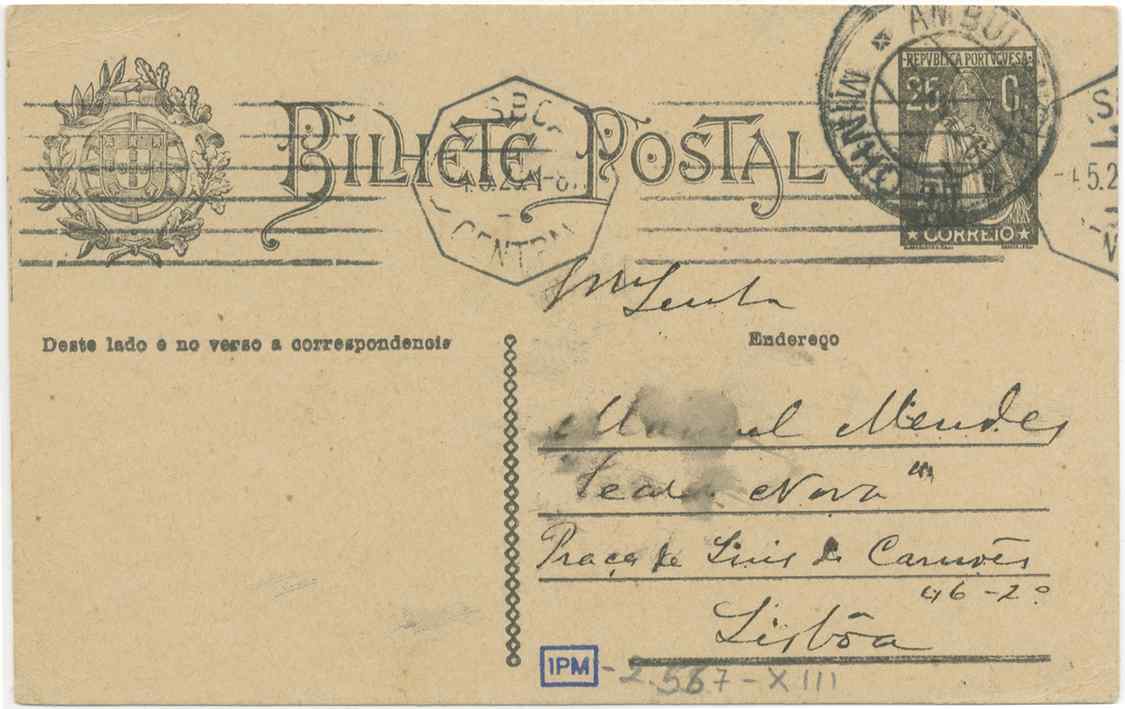 AMBUL
MINHO
REPVBLICA PORTVGUESA
25 C.
BILHETE POSTAL
CENTRAL
5.2
CORREIO
Deste lado e no verso a correspondencia
Endereço
Manuel Mendes
"Seara Nova"
Praça de Luis de Camões
46-2º
Lisbôa
IPM - 2.567-XIII